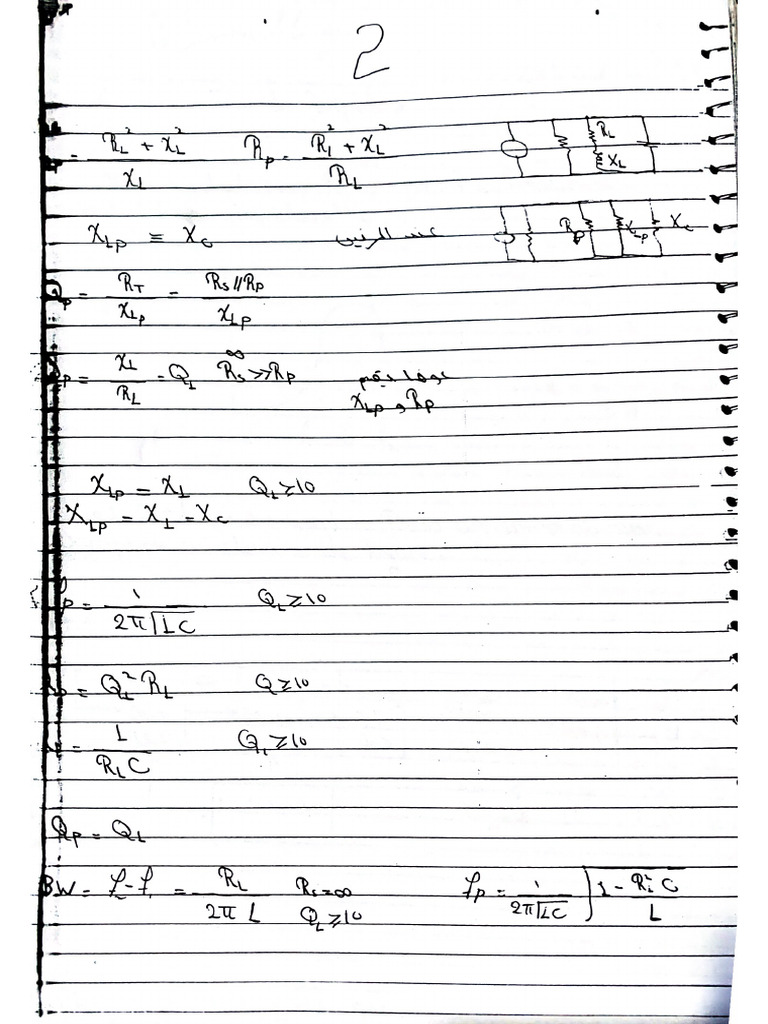 2
= (R_L² + X_L²) / X_L    R_p = (R_L² + X_L²) / R_L    R_L X_L
X_Lp = X_C    عند الرنين    R_p X_Lp X_C
Q_p = R_T / X_Lp = R_s // R_p / X_Lp
Q_p = X_L / R_L = Q_L    ∞ R_s >> R_p
X_Lp و R_p
X_Lp = X_L    Q_L ≥ 10
X_Lp = X_L = X_C
f_p = 1 / 2π√LC    Q_L ≥ 10
R_p = Q_L² R_L    Q ≥ 10
= L / R_L C    Q_L ≥ 10
Q_p = Q_L
BW = f_2 - f_1 = R_L / 2π L    R_s = ∞ Q_L ≥ 10    f_p = 1 / 2π√LC √(1 - R_L² C / L)